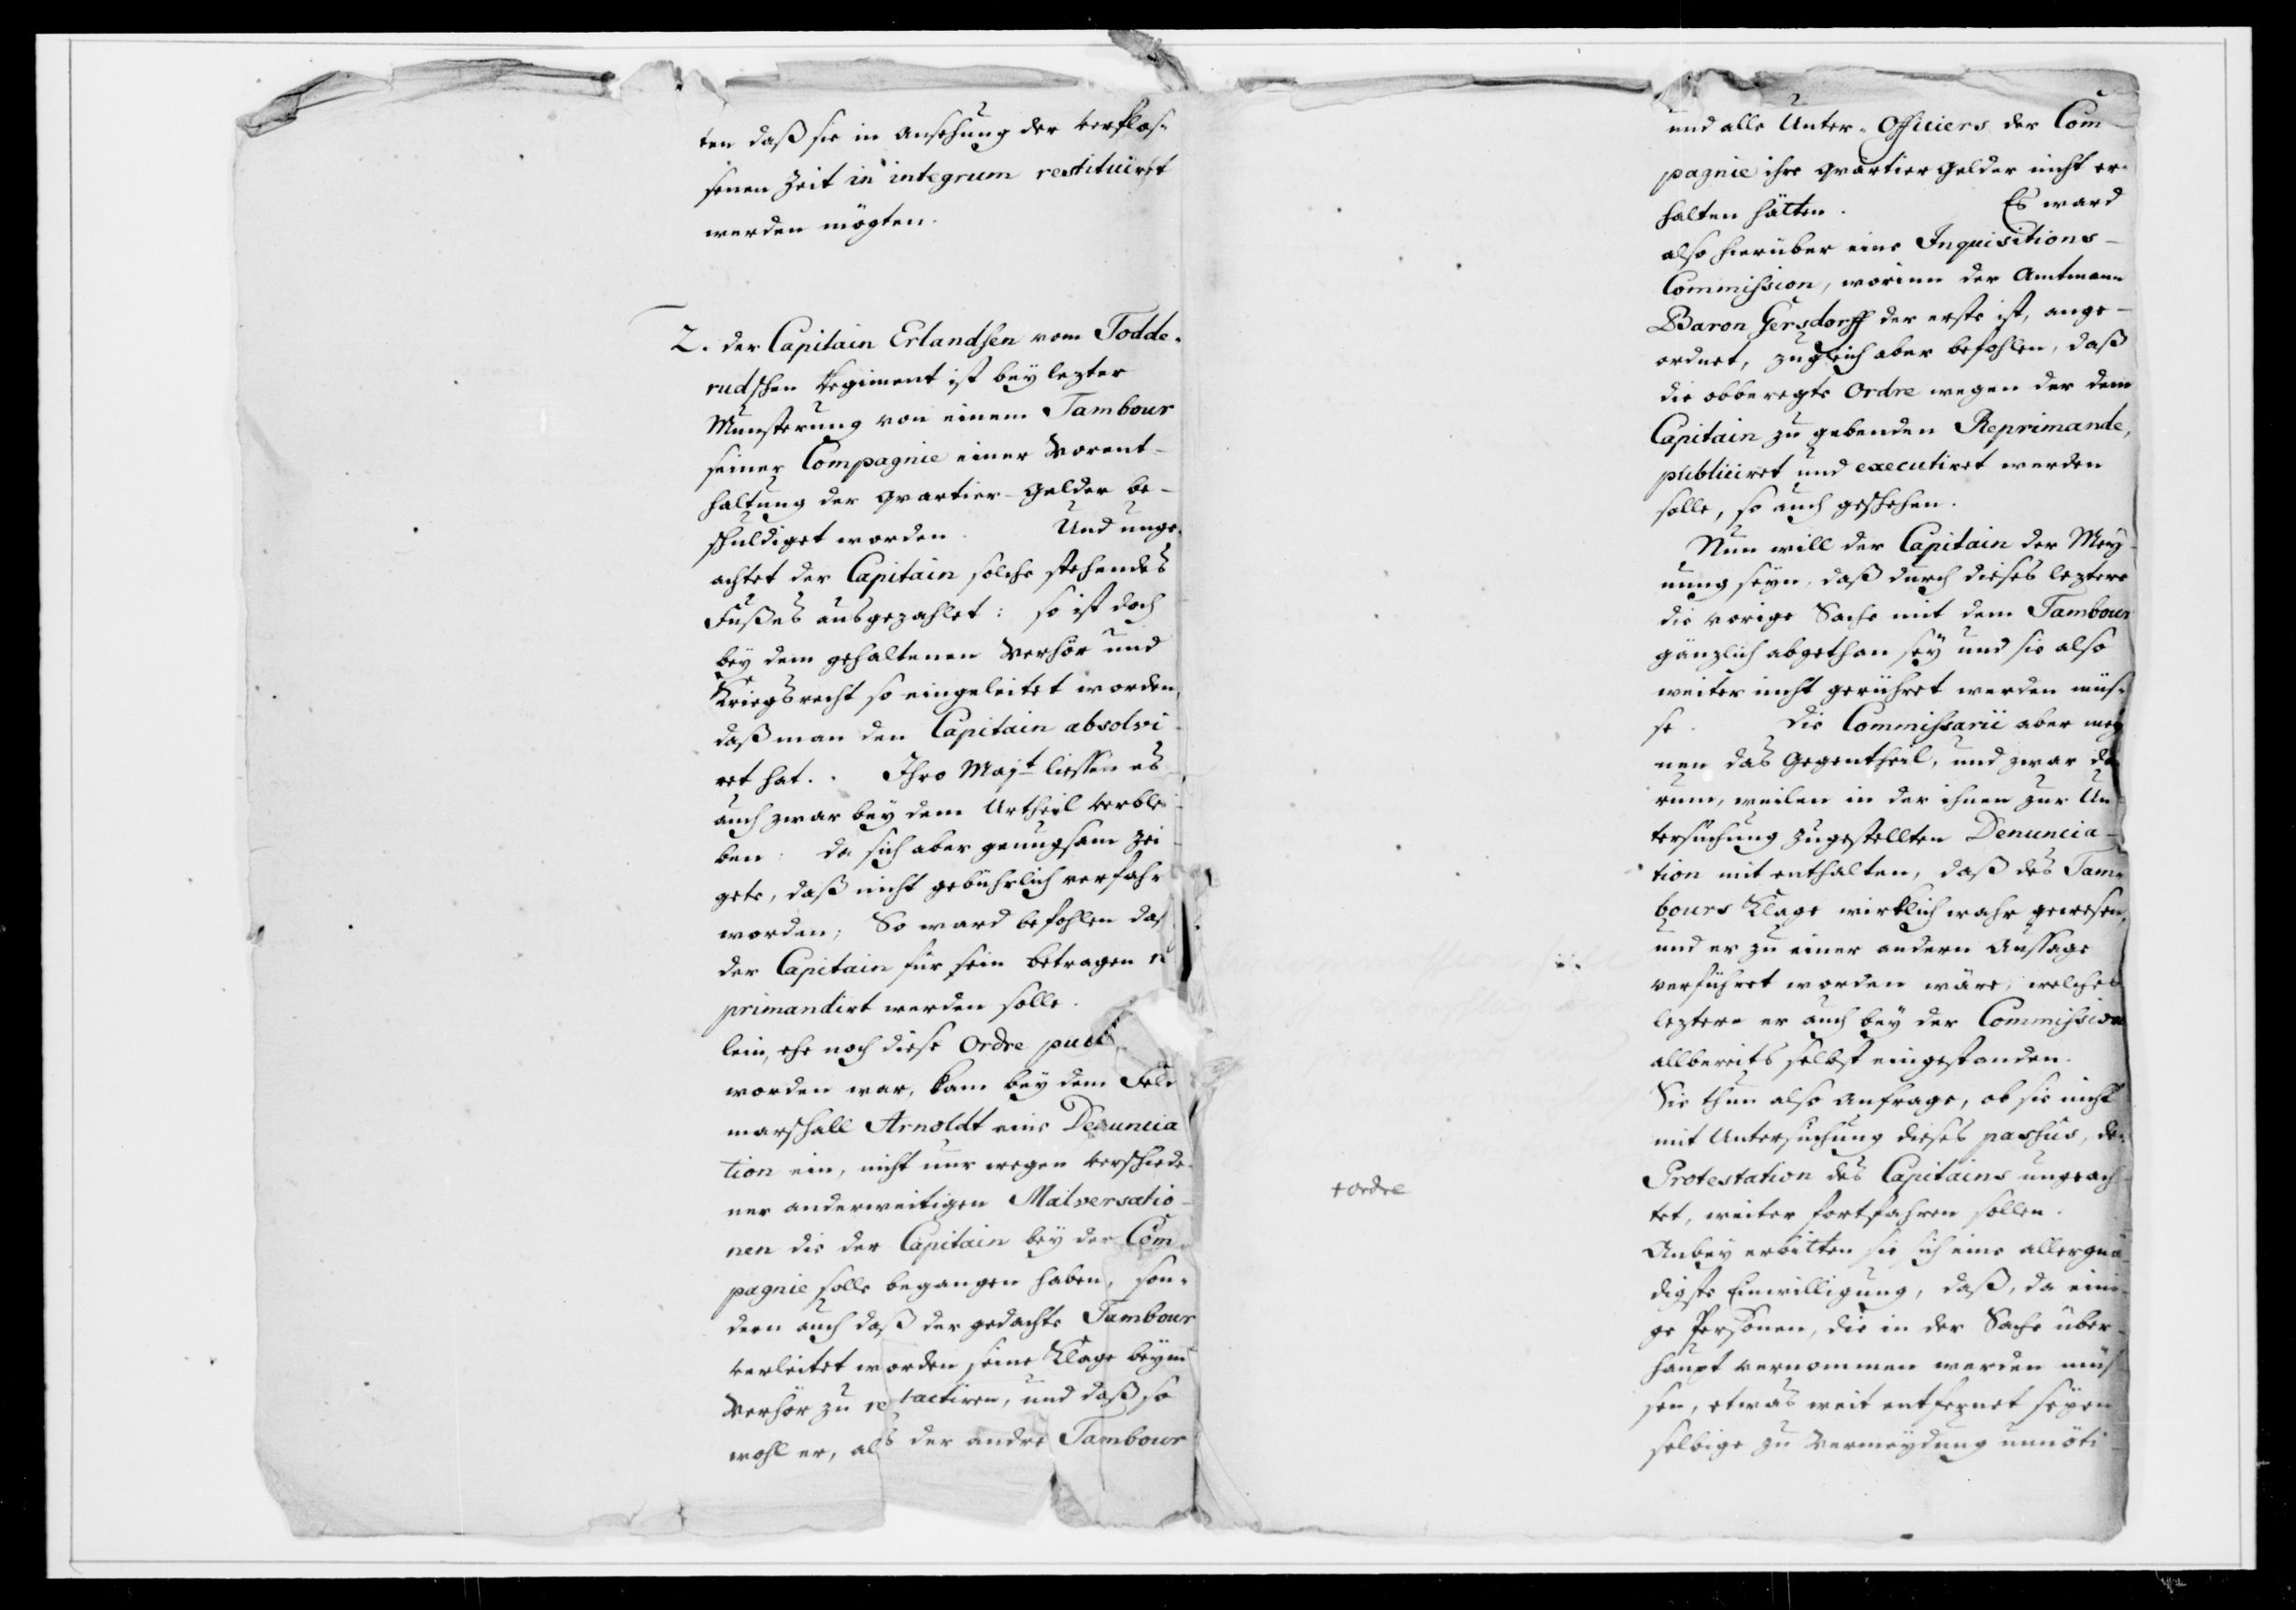 ten daß sie in ansehung der verflos-
senen Zeit in integrum restituiret
werden mögten.
2. der Capitain Erlandsen vom Todde-
rudschen Regiment ist bey lezter
Munsterung von einem Tambour
seiner Compagnie einer Vorent-
haltung der Quartier-Gelder be-
schuldiget worden. Und unge-
achtet der Capitain solche stehendes
Fußes ausgezahlet: so ist doch
bey dem gehaltenen Verhör und
Kriegsrecht so eingeleitet worden,
daß man den Capitain absolvi-
ret hat. Ihro Majt liessen es
auch zwar bey dem Urtheil verblei-
ben: da sich aber genugsam zei-
gete, daß nicht gebührlich verfahr
worden; So ward befohlen daß
der Capitain für sein betragen re
primandirt werden solle.
lein, ehe noch diese Ordre publ
worden war, kam bey dem Feld
marschall Arnoldt eine Denuncia
tion ein, nicht nur wegen verschiede-
ner anderweitigen Malversatio-
nen die der Capitain bey der Com-
pagnie solle begangen haben, son-
dern auch daß der gedachte Tambour
verleitet worden seine Klage beym
Verhör zu retractiren, und daß so
wohl er, als der andre Tambour
und alle Unter-Officiers der Com
pagnie ihre Quartier Gelder nicht er-
halten hätten. Es ward
also hierüber eine Inquisitions-
Commission, worinn der Amtmann
Baron Gersdorff der erste ist, ange-
ordnet, zugleich aber befohlen, daß
die obberegte Ordre wegen der dem
Capitain zu gebenden Reprimande,
publiciret und executiret werden
solle, so auch geschehen.
Nun will der Capitain der Mey-
nung seyn, daß durch dieses leztere
die vorige Sache mit dem Tambour
gänzlich abgethan sey und sie also
weiter nicht gerühret werden müs-
se. Die Commissarii aber mey
nen das Gegentheil, und zwar da
rum, weilen in der ihnen zur Un-
tersuchung zugestellten Denuncia-
tion mit enthalten, daß des Tam-
bours Klage wirklich wahr gewesen,
und er zu einer andern Aussage
verführet worden wäre, welches
leztere er auch bey der Commission
allbereits selbst eingestanden.
Sie thun also Anfrage, ob sie nicht
mit Untersuchung dieses passus, der
+ ordre
Protestation des Capitains ungeach-
tet, weiter fortfahren sollen.
Anbey erbitten sie sich eine allergnä-
digste Einwilligung, daß, da eini-
ge Personen, die in der Sache über-
haupt vernommen werden müs-
sen, etwas weit entfernet seyen
selbige zu Vermeydung unnöti-